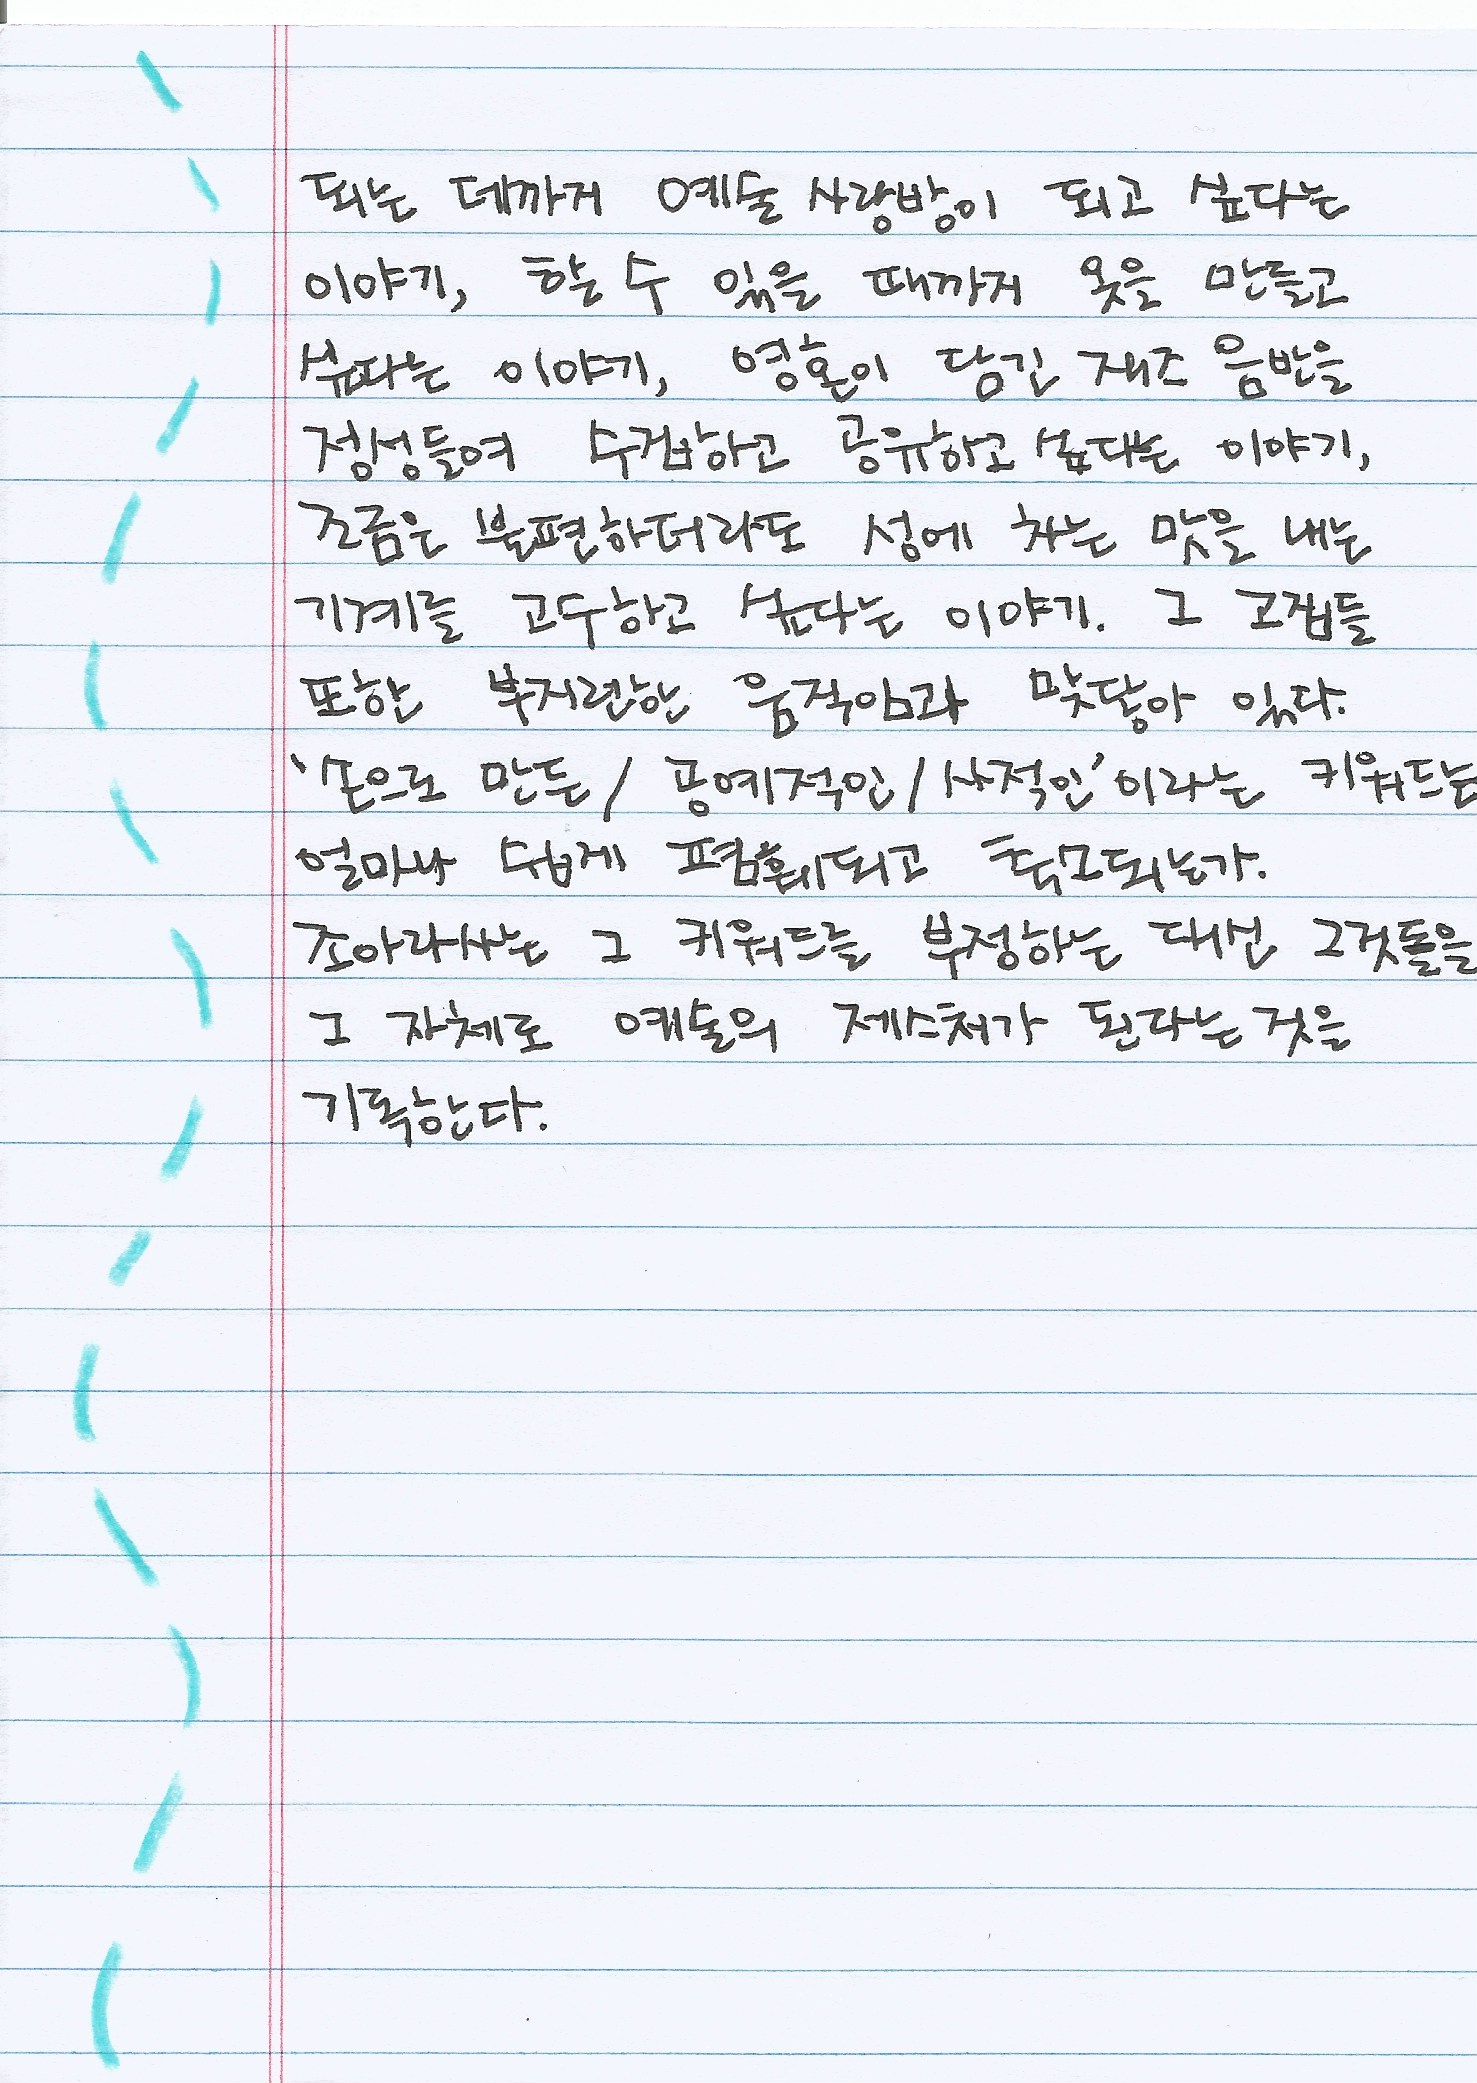 되는 데까지 예술 사랑방이 되고 싶다는
이야기, 할 수 있을 때까지 옷을 만들고
싶다는 이야기, 영혼이 담긴 재즈 음반을
정성들여 수집하고 공유하고 싶다는 이야기,
조금은 불편하더라도 성에 차는 맛을 내는
기계를 고수하고 싶다는 이야기. 그 고집들
또한 부지런한 움직임과 맞닿아 있다.
'손으로 만든/공예적인/사적인'이라는 키워드는
얼마나 쉽게 폄훼되고 축소되는가.
조아라사는 그 키워드를 부정하는 대신 그것들을
그 자체로 예술의 제스처가 된다는 것을
기록한다.